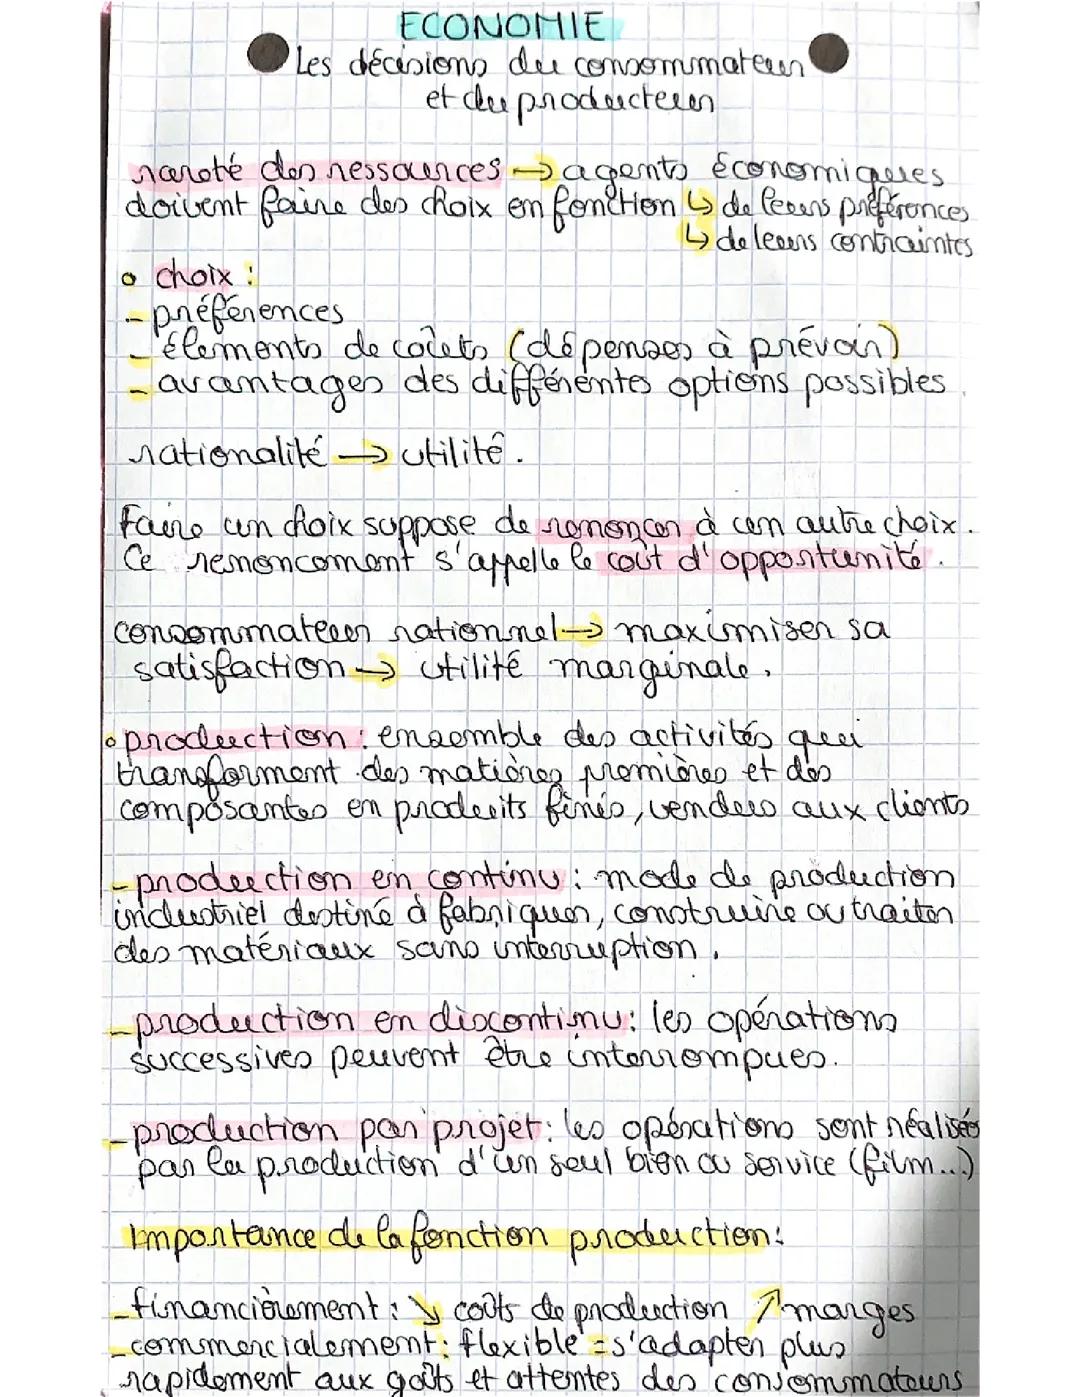 ECONOMIE
Les décisions du consommateur
et du producteur
rareté des ressources → agents économiques
doivent faire des choix en fonction ↳ de leurs préférences
↳ de leurs contraintes
• choix :
- préférences
- élements de coûts (dépenses à prévoir)
- avantages des différentes options possibles.
rationalité → utilité.
Faire un choix suppose de renoncer à un autre choix.
Ce renoncement s'appelle le coût d'opportunité.
consommateur rationnel → maximiser sa
satisfaction → utilité marginale.
• production : ensemble des activités qui
transforment des matières premières et des
composantes en produits finis, vendus aux clients
- production en continu : mode de production
industriel destiné à fabriquer, construire ou traiter
des matériaux sans interruption.
- production en discontinu : les opérations
successives peuvent être interrompues.
- production par projet : les opérations sont réalisées
par la production d'un seul bien ou service (film...)
Importance de la fonction production :
- financièrement : ↘ coûts de production ↗ marges
- commercialement : flexible = s'adapter plus
rapidement aux goûts et attentes des consommateurs